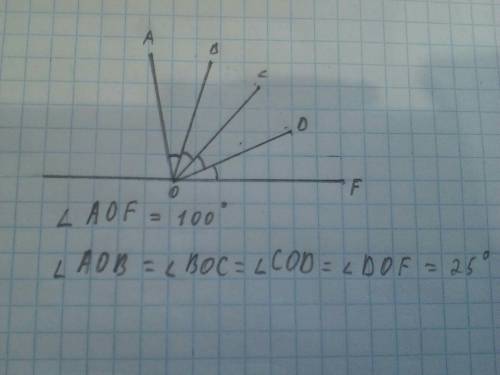 A
B
C
D
O
F
∠AOF = 100°
∠AOB = ∠BOC = ∠COD = ∠DOF = 25°